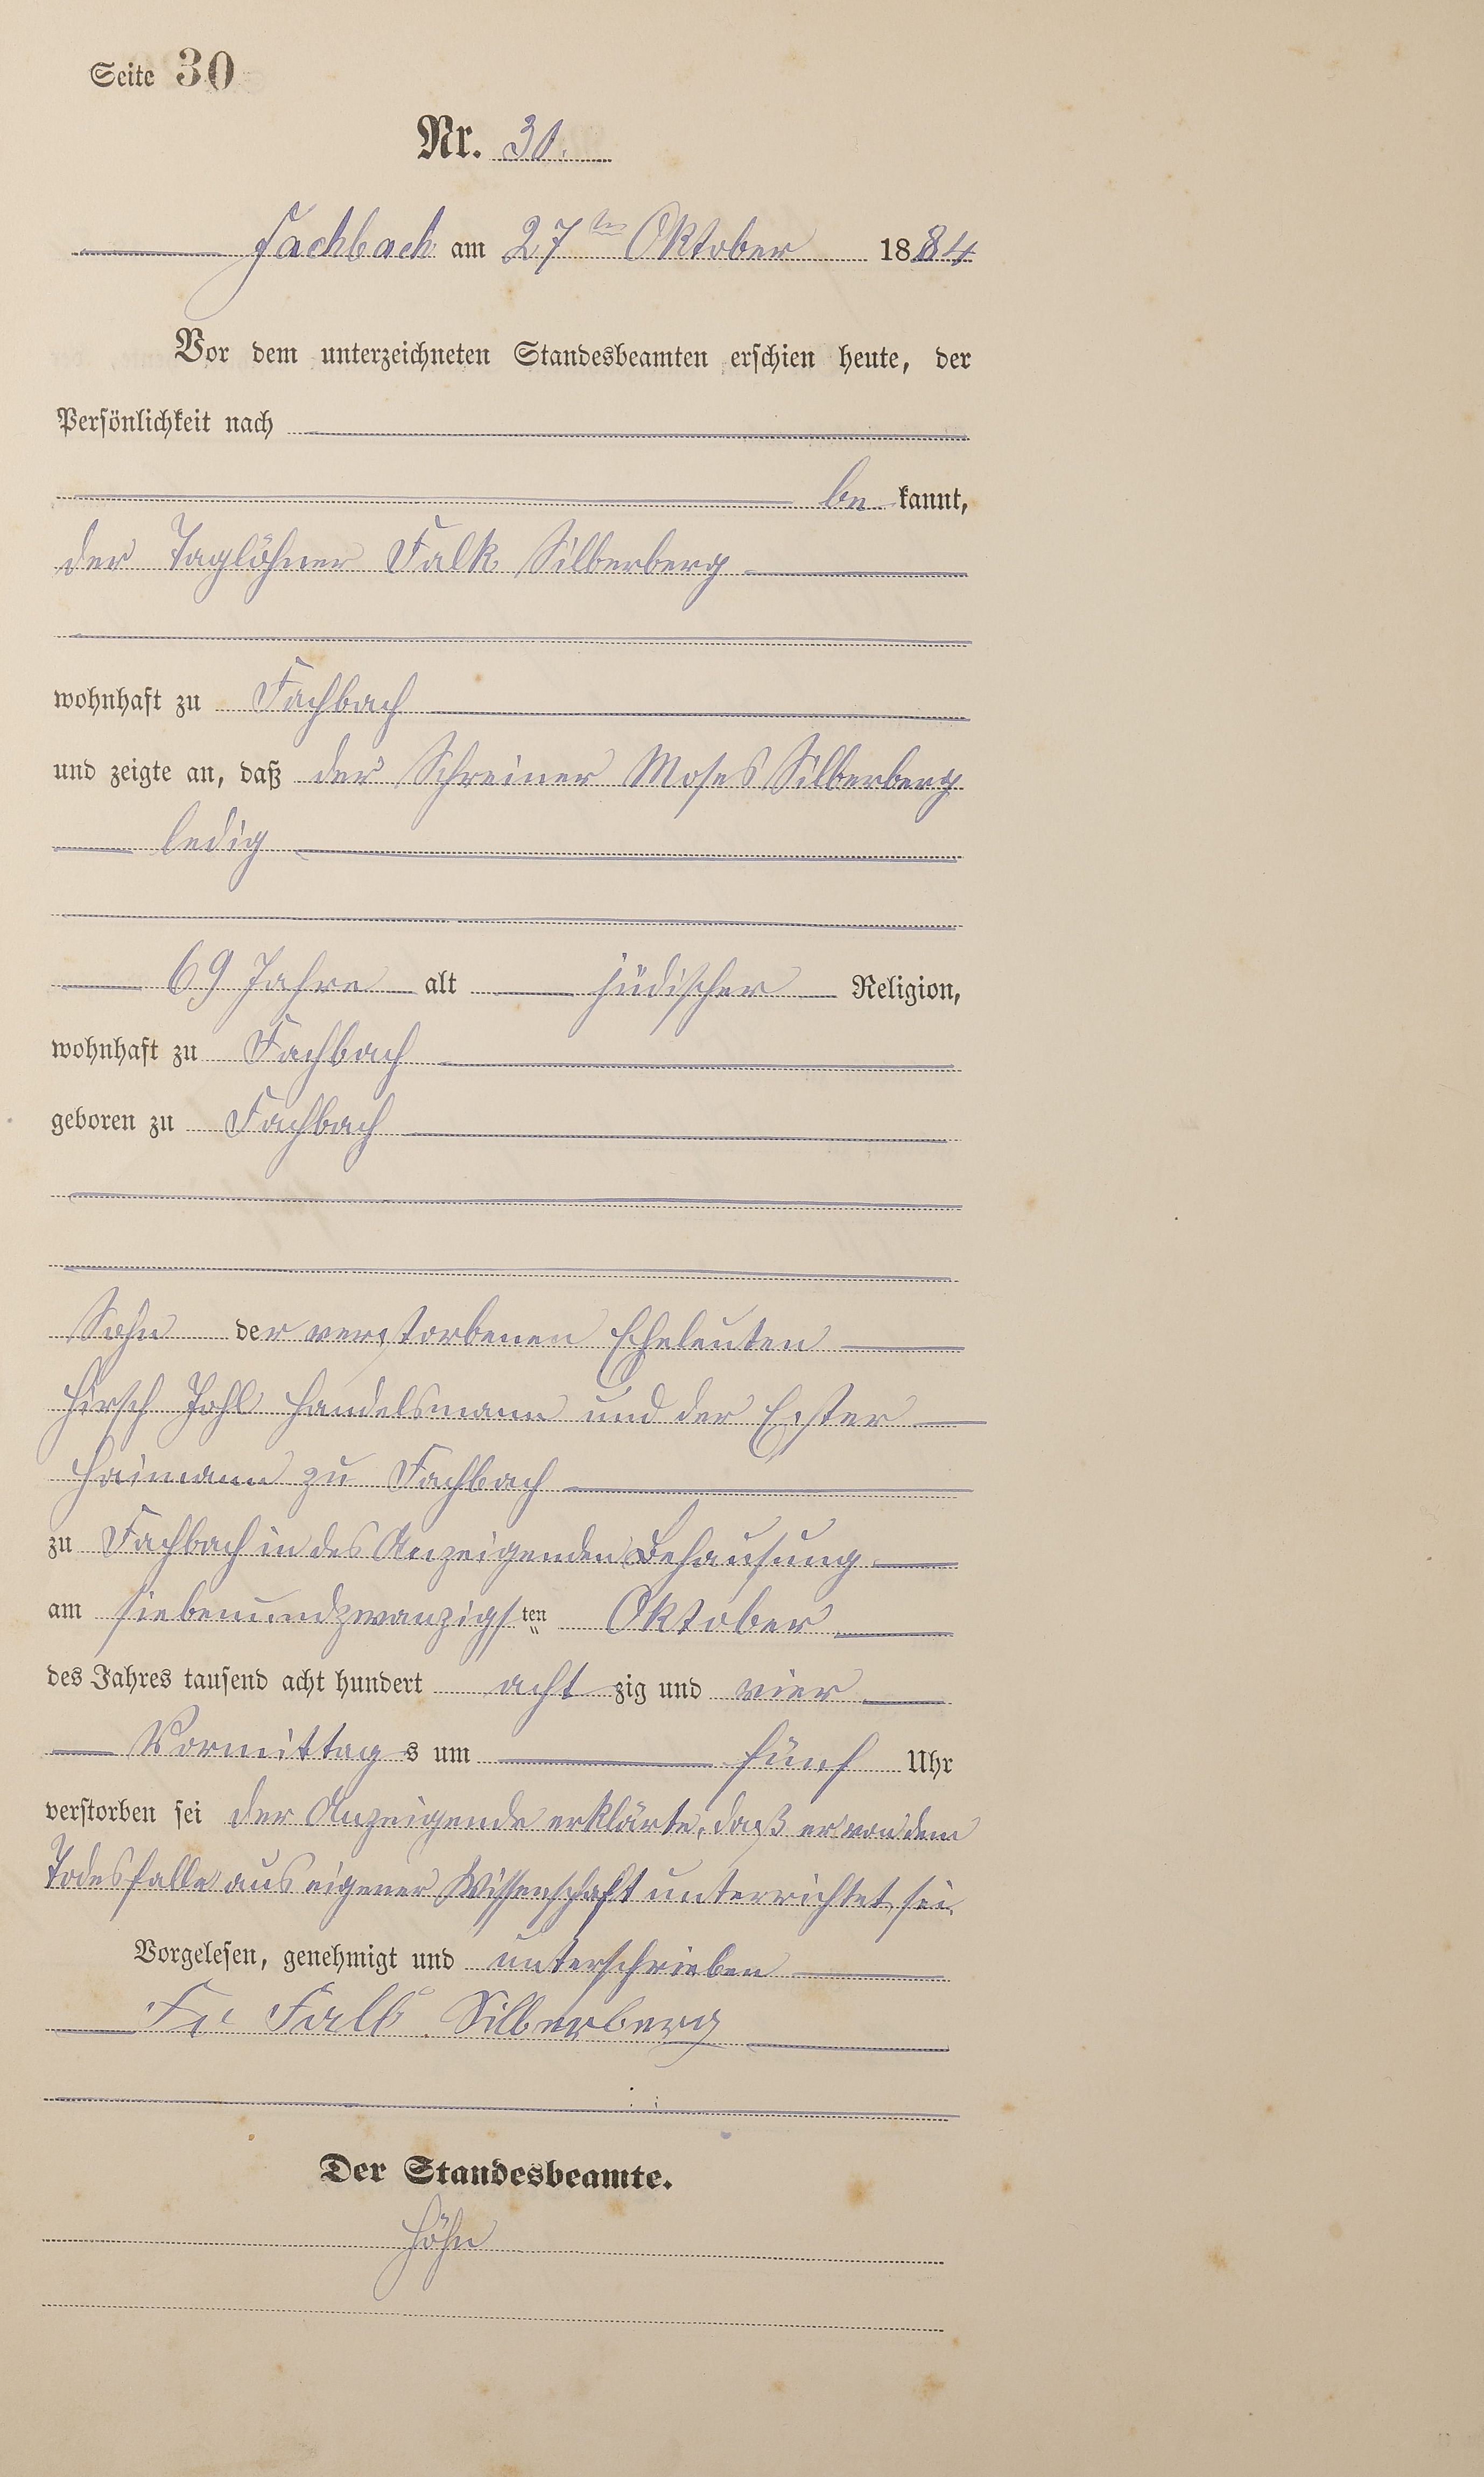 Seite 30
Nr. 30.
Fachbach am 27ten Oktober 1884
Vor dem unterzeichneten Standesbeamten erschien heute, der
Persönlichkeit nach
be kannt,
der Taglöhner Falk Silberberg
wohnhaft zu Fachbach
und zeigte an, daß der Schreiner Moses Silberberg
ledig
69 Jahre alt jüdischer Religion,
wohnhaft zu Fachbach
geboren zu Fachbach
Sohn der verstorbenen Eheleuten
Hirsch Johl Handelsmann und der Ester
Haimann zu Fachbach
zu Fachbach in des Anzeigenden Behausung
am siebenundzwanzigsten Oktober
des Jahres tausend acht hundert acht zig und vier
Vormittag s um fünf Uhr
verstorben sei der Anzeigende erklärte, daß er von dem
Todesfalle aus eigener Wissenschaft unterrichtet sei.
Vorgelesen, genehmigt und unterschrieben
Falk Silberberg
Der Standesbeamte.
Höhn